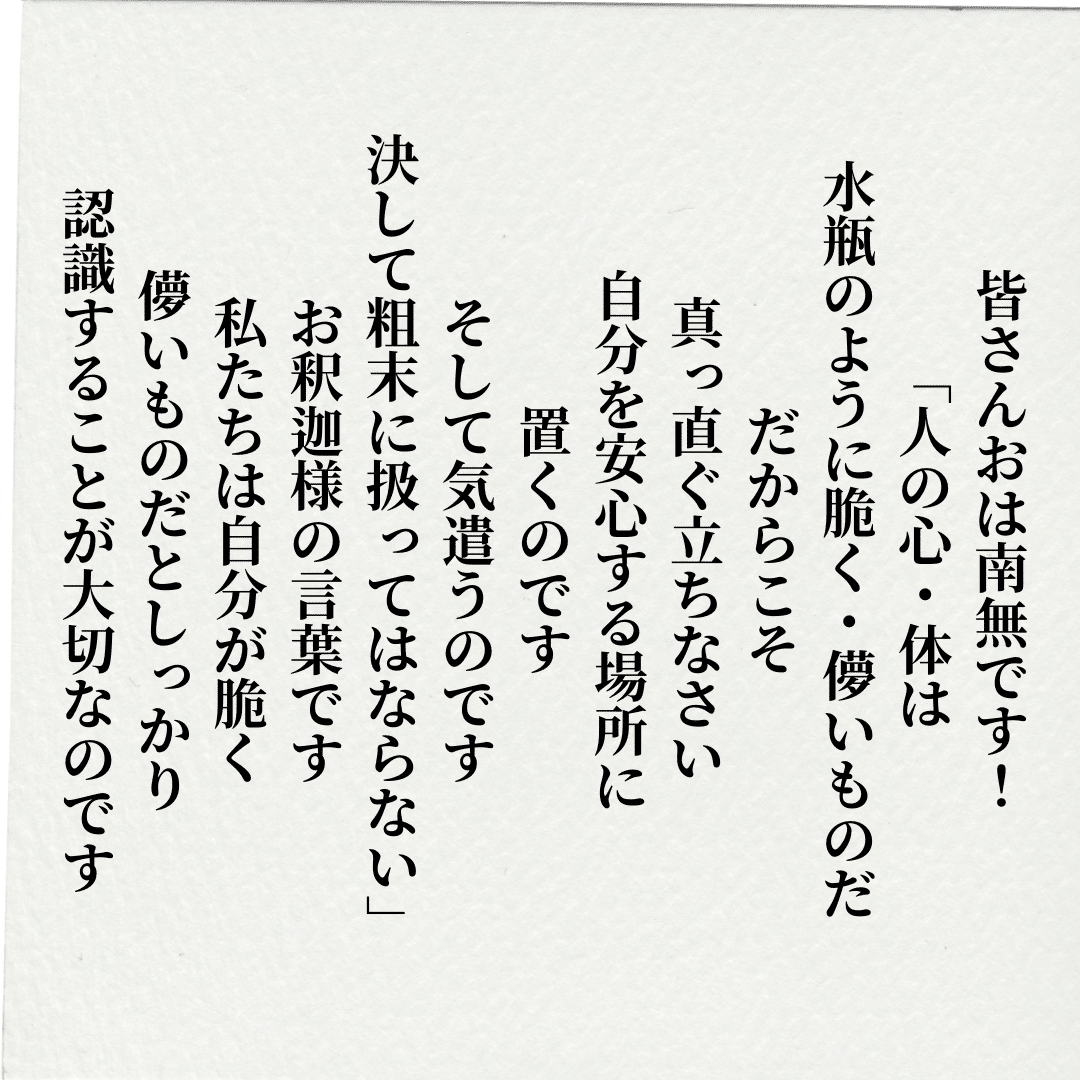 皆さんおは南無です！
「人の心・体は
水瓶のように脆く・儚いものだ
だからこそ
真っ直ぐ立ちなさい
自分を安心する場所に
置くのです
そして気遣うのです
決して粗末に扱ってはならない」
お釈迦様の言葉です
私たちは自分が脆く
儚いものだとしっかり
認識することが大切なのです